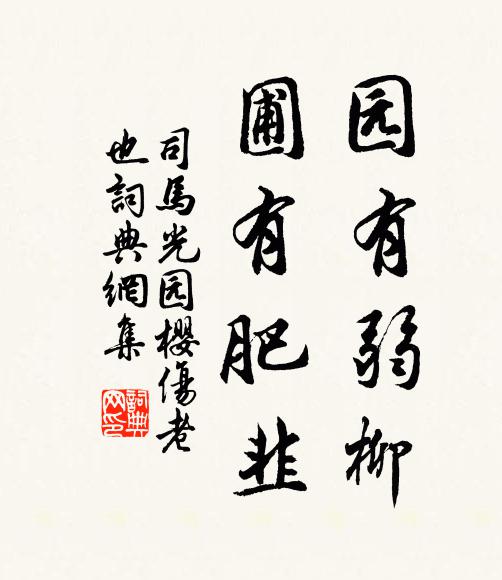 园有弱柳
圃有肥韭
司馬光园櫻傷老
也詞典網集
詞典
网印